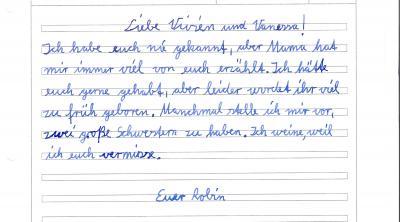 Liebe Vivién und Vanessa!
Ich habe euch nie gekannt, aber Mama hat
mir immer viel von euch erzählt. Ich hätte
euch gerne gehabt, aber leider wurdet ihr viel
zu früh geboren. Manchmal stelle ich mir vor,
zwei große Schwestern zu haben. Ich weine, weil
ich euch vermisse.
Euer Robin